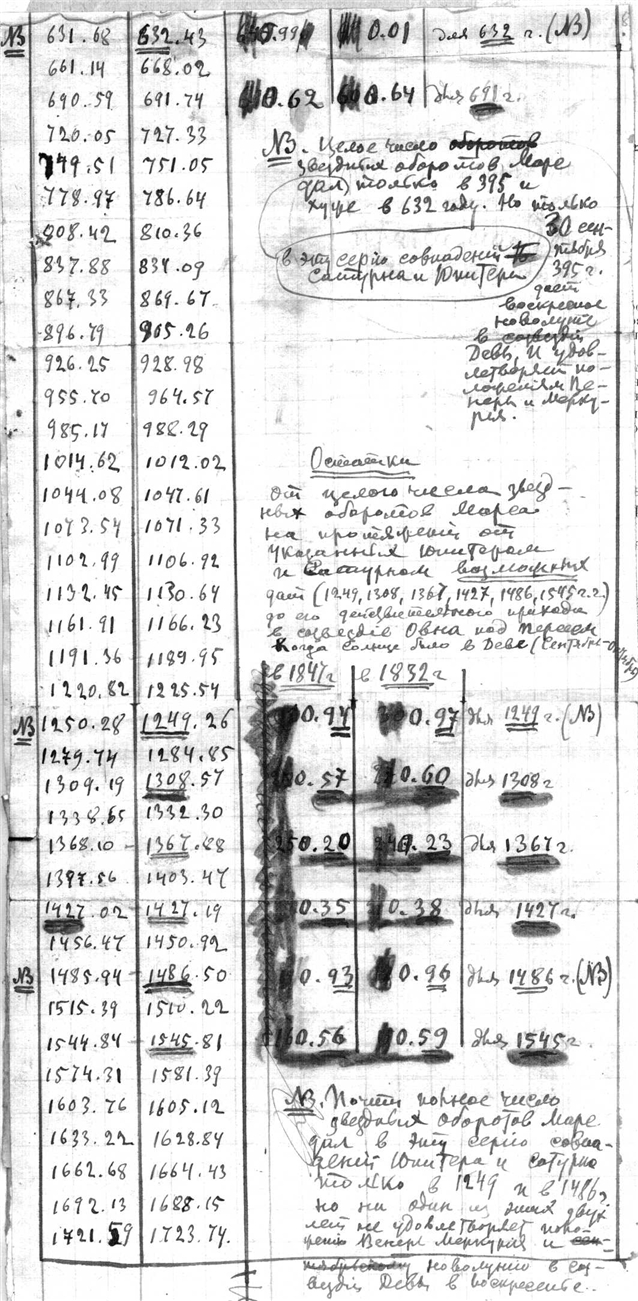 NB 631.68 632.43 0.01 для 632 г. (NB)
661.14 668.02
690.59 691.74 0.62 0.64 для 691 г.
720.05 727.33
749.51 751.05
778.97 786.64
808.42 810.36
837.88 834.09
867.33 869.67
896.79 905.26
926.25 928.98
955.70 964.57
985.17 988.29
1014.62 1012.02
1044.08 1047.61
1073.54 1071.33
1102.99 1106.92
1132.45 1130.64
1161.91 1166.23
1191.36 1189.95
1220.82 1225.54
NB 1250.28 1249.26
1279.74 1284.85
1309.19 1308.57
1338.65 1332.30
1368.10 1367.88
1397.56 1403.47
1427.02 1427.19
1456.47 1450.92
NB 1485.94 1486.50
1515.39 1510.22
1544.84 1545.81
1574.31 1581.39
1603.76 1605.12
1633.22 1628.84
1662.68 1664.43
1692.13 1688.15
1721.59 1723.74.
NB. Целое число оборотов
звездных оборотов Марс
дал только в 395 и
хуже в 632 году. Но только
30 сен-
тября
395 г.
дает
воскресное
новолуние
в созвездии
Девы, и удов-
летворяет по-
ложениям Ве-
неры и Мерку-
рия.
в эту серию совпадений
Сатурна и Юпитера
Остатки
от целого числа звезд-
ных оборотов Марса
на протяжении от
указанных Юпитером
и Сатурном возможных
дат (1249, 1308, 1367, 1427, 1486, 1545 г.г.)
до его действительного прихода
в созвездие Овна под Персеем
когда солнце было в Деве (сентябрь-
в 1847 г в 1832 г
0.94 0.97 для 1249 г. (NB)
0.57 0.60 для 1308 г
0.20 0.23 для 1367 г.
0.35 0.38 для 1427 г.
0.93 0.96 для 1486 г. (NB)
0.56 0.59 для 1545 г.
NB. Почти полное число
звездных оборотов Марс
дал в эту серию совпа-
дений Юпитера и Сатурна
только в 1249 и в 1486,
но ни один из этих двух
лет не удовлетворяет поло-
жению Венеры Меркурия и сен-
тябрьскому новолунию в со-
звездии Девы в воскресенье.